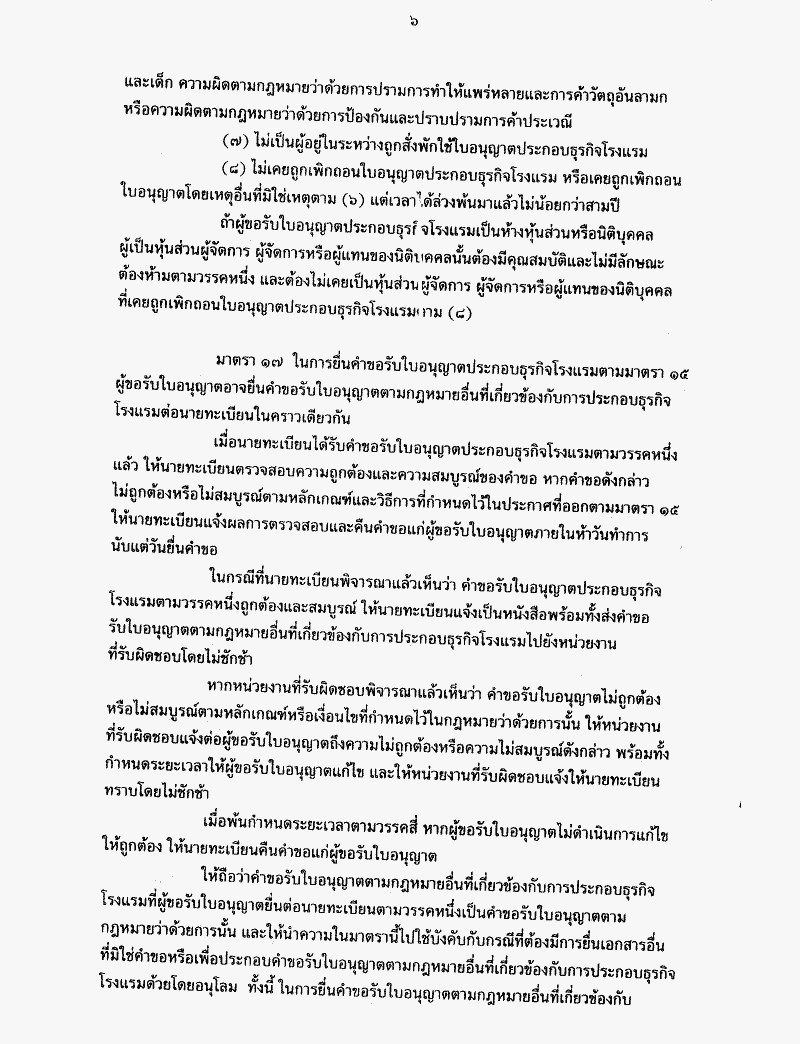 ๖
และเด็ก ความผิดตามกฎหมายว่าด้วยการปรามการทำให้แพร่หลายและการค้าวัตถุอันลามก
หรือความผิดตามกฎหมายว่าด้วยการป้องกันและปราบปรามการค้าประเวณี
(๗) ไม่เป็นผู้อยู่ในระหว่างถูกสั่งพักใช้ใบอนุญาตประกอบธุรกิจโรงแรม
(๘) ไม่เคยถูกเพิกถอนใบอนุญาตประกอบธุรกิจโรงแรม หรือเคยถูกเพิกถอน
ใบอนุญาตโดยเหตุอื่นที่มิใช่เหตุตาม (๖) แต่เวลาได้ล่วงพ้นมาแล้วไม่น้อยกว่าสามปี
ถ้าผู้ขอรับใบอนุญาตประกอบธุรกิจโรงแรมเป็นห้างหุ้นส่วนหรือนิติบุคคล
ผู้เป็นหุ้นส่วนผู้จัดการ ผู้จัดการหรือผู้แทนของนิติบุคคลนั้นต้องมีคุณสมบัติและไม่มีลักษณะ
ต้องห้ามตามวรรคหนึ่ง และต้องไม่เคยเป็นหุ้นส่วนผู้จัดการ ผู้จัดการหรือผู้แทนของนิติบุคคล
ที่เคยถูกเพิกถอนใบอนุญาตประกอบธุรกิจโรงแรมตาม (๘)
มาตรา ๑๗ ในการยื่นคำขอรับใบอนุญาตประกอบธุรกิจโรงแรมตามมาตรา ๑๕
ผู้ขอรับใบอนุญาตอาจยื่นคำขอรับใบอนุญาตตามกฎหมายอื่นที่เกี่ยวข้องกับการประกอบธุรกิจ
โรงแรมต่อนายทะเบียนในคราวเดียวกัน
เมื่อนายทะเบียนได้รับคำขอรับใบอนุญาตประกอบธุรกิจโรงแรมตามวรรคหนึ่ง
แล้ว ให้นายทะเบียนตรวจสอบความถูกต้องและความสมบูรณ์ของคำขอ หากคำขอดังกล่าว
ไม่ถูกต้องหรือไม่สมบูรณ์ตามหลักเกณฑ์และวิธีการที่กำหนดไว้ในประกาศที่ออกตามมาตรา ๑๕
ให้นายทะเบียนแจ้งผลการตรวจสอบและคืนคำขอแก่ผู้ขอรับใบอนุญาตภายในห้าวันทำการ
นับแต่วันยื่นคำขอ
ในกรณีที่นายทะเบียนพิจารณาแล้วเห็นว่า คำขอรับใบอนุญาตประกอบธุรกิจ
โรงแรมตามวรรคหนึ่งถูกต้องและสมบูรณ์ ให้นายทะเบียนแจ้งเป็นหนังสือพร้อมทั้งส่งคำขอ
รับใบอนุญาตตามกฎหมายอื่นที่เกี่ยวข้องกับการประกอบธุรกิจโรงแรมไปยังหน่วยงาน
ที่รับผิดชอบโดยไม่ชักช้า
หากหน่วยงานที่รับผิดชอบพิจารณาแล้วเห็นว่า คำขอรับใบอนุญาตไม่ถูกต้อง
หรือไม่สมบูรณ์ตามหลักเกณฑ์หรือเงื่อนไขที่กำหนดไว้ในกฎหมายว่าด้วยการนั้น ให้หน่วยงาน
ที่รับผิดชอบแจ้งต่อผู้ขอรับใบอนุญาตถึงความไม่ถูกต้องหรือความไม่สมบูรณ์ดังกล่าว พร้อมทั้ง
กำหนดระยะเวลาให้ผู้ขอรับใบอนุญาตแก้ไข และให้หน่วยงานที่รับผิดชอบแจ้งให้นายทะเบียน
ทราบโดยไม่ชักช้า
เมื่อพ้นกำหนดระยะเวลาตามวรรคสี่ หากผู้ขอรับใบอนุญาตไม่ดำเนินการแก้ไข
ให้ถูกต้อง ให้นายทะเบียนคืนคำขอแก่ผู้ขอรับใบอนุญาต
ให้ถือว่าคำขอรับใบอนุญาตตามกฎหมายอื่นที่เกี่ยวข้องกับการประกอบธุรกิจ
โรงแรมที่ผู้ขอรับใบอนุญาตยื่นต่อนายทะเบียนตามวรรคหนึ่งเป็นคำขอรับใบอนุญาตตาม
กฎหมายว่าด้วยการนั้น และให้นำความในมาตรานี้ไปใช้บังคับกับกรณีที่ต้องมีการยื่นเอกสารอื่น
ที่มิใช่คำขอหรือเพื่อประกอบคำขอรับใบอนุญาตตามกฎหมายอื่นที่เกี่ยวข้องกับการประกอบธุรกิจ
โรงแรมด้วยโดยอนุโลม ทั้งนี้ ในการยื่นคำขอรับใบอนุญาตตามกฎหมายอื่นที่เกี่ยวข้องกับ